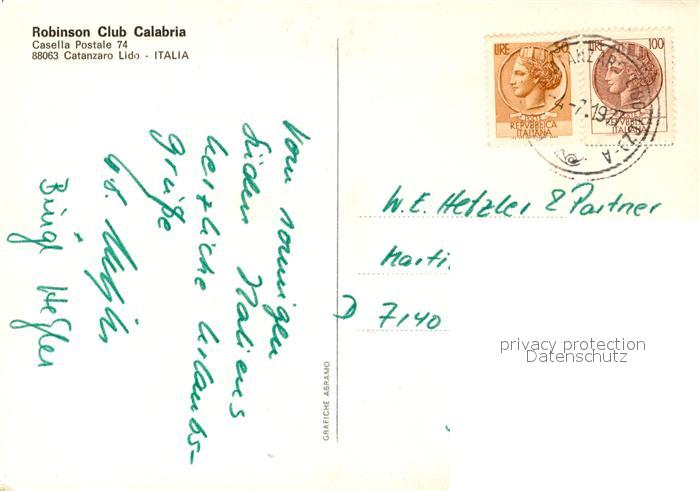 Robinson Club Calabria
Casella Postale 74
88063 Catanzaro Lido - ITALIA
LIRE 50
REPVBBLICA
ITALIANA
LIRE 100
REPVBBLICA
ITALIANA
-4-7.1977
Vom sonnigen
Süden Italiens
herzliche Urlaubs-
grüße
GRAFICHE ABRAMO
W.E. Hetzler & Partner
Marti
D 7140
privacy protection
Datenschutz